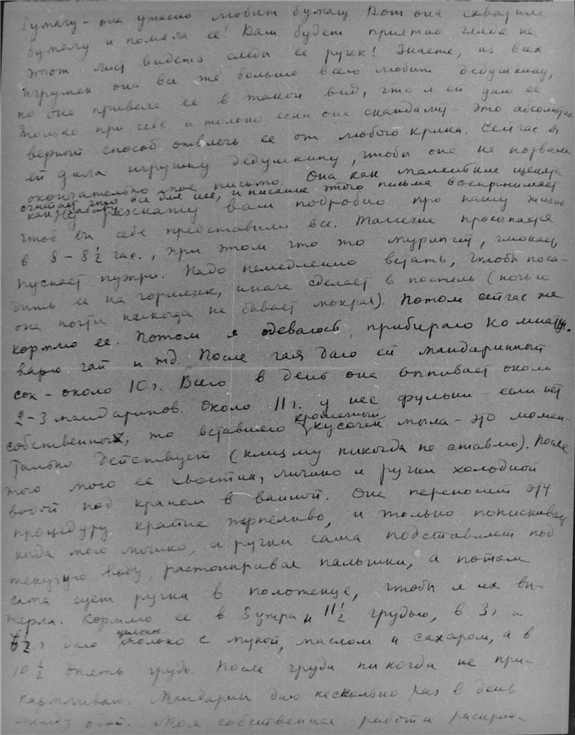 бумагу - она ужасно любит бумагу. Вот она схватила
бумагу и помяла ее! Вам будет приятно глядя на
этот лист видеть следы ее ручек! Знаете, из всех
игрушек она все же больше всего любит дедушкину,
но она привела ее в такой вид, что я ей даю ее
только при себе и только если она скандалит - это абсолютно
верный способ отвлечь ее от любого крика. Сейчас я
ей дала игрушку дедушкину, чтобы она не порвала
окончательно мое письмо. Она как маленькие щенята
считает что все для нее, и писание этого письма воспринимает
как забаву
расскажу вам подробно про нашу жизнь
чтоб вы себе представили все. Танечка просыпается
в 8 - 8 1/2 час., при этом что то мурлычит, чмокает,
пускает пузыри. Надо немедленно встать, чтобы поса-
дить ее на горшок, иначе сделает в постель (ночью
она почти никогда не бывает мокрая). Потом сейчас же
кормлю ее. Потом я одеваюсь, прибираю комнату,
варю чай и тд. После чая даю ей мандаринный
сок - около 10 г. Всего в день она выпивает около
2-3 мандаринов. Около 11 г. у нее фульши - если нет
собственных, то вставляю крошечный кусочек мыла - это момен-
тально действует (клизму никогда не ставлю). После
этого мою ее хвостик, личико и ручки холодной
водой под краном в ванной. Она переносит эту
процедуру крайне терпеливо, и только попискивает
когда мою личико, а ручки сама подставляет под
текущую воду, растопыривая пальчики, а потом
сама сует ручки в полотенце, чтобы я их вы-
терла. Кормлю ее в 5 утра и 11 1/2 грудью, в 3 ч и
6 1/2 ч даю цельное молоко с мукой, маслом и сахаром, а в
10 1/2 опять грудь. После груди никогда не при-
кармливаю. Мандарин даю несколько раз в день
между едой. Моя собственная работа